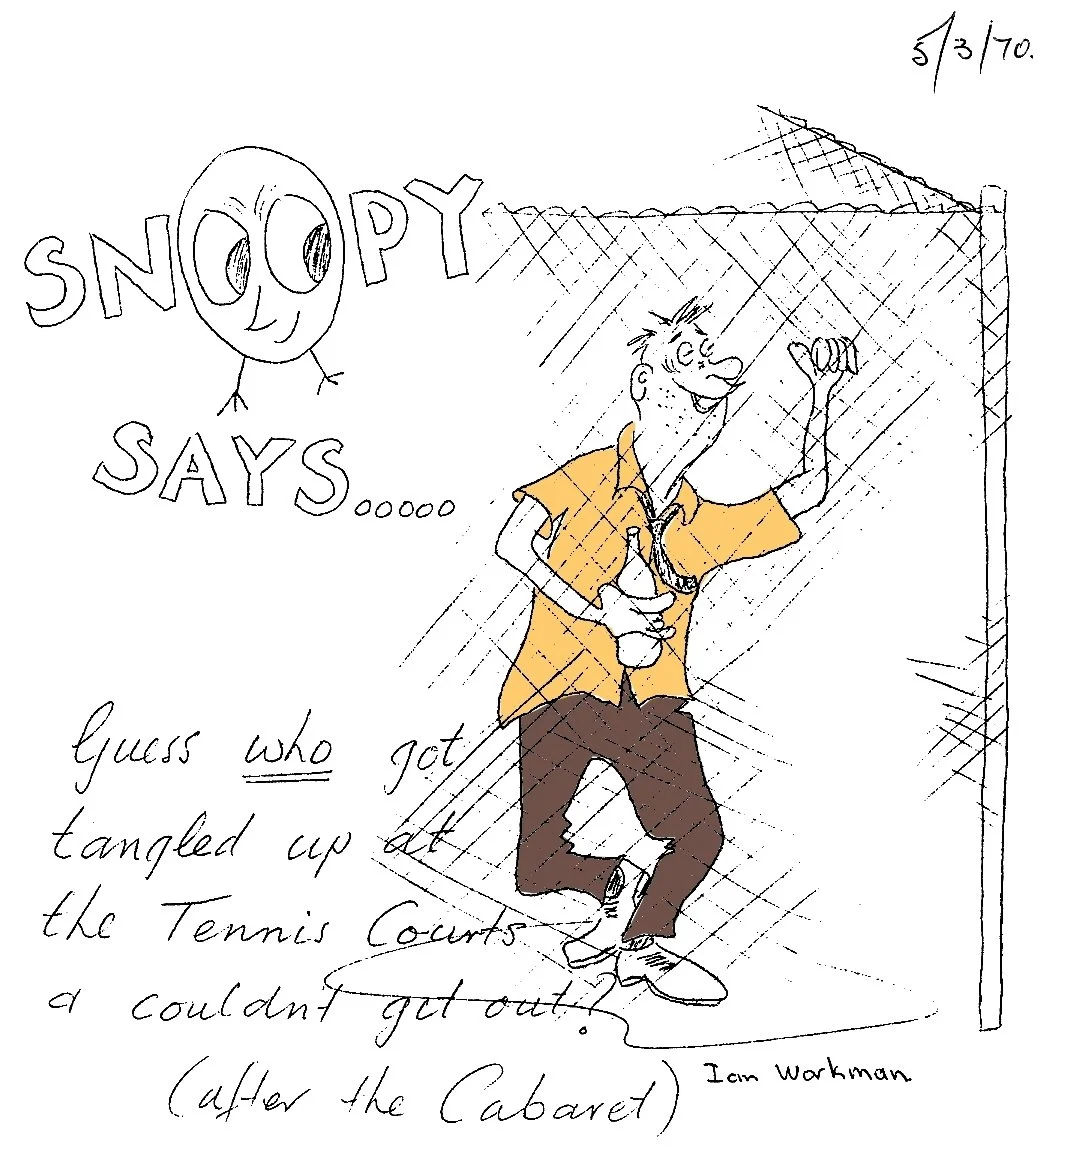 5/3/70.
SNOOPY
SAYS.....
Guess who got
tangled up at
the Tennis Courts
a couldnt get out?
(after the Cabaret)
Ian Workman